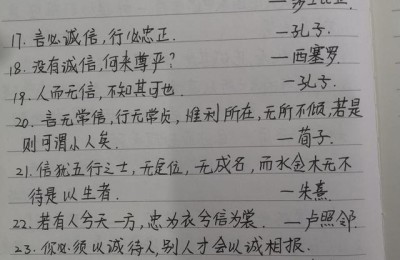 17. 言必诚信,行必忠正. —孔子.
18. 没有诚信,何来尊严? —西塞罗.
19. 人而无信,不知其可也. —孔子.
20. 言无常信,行无常贞,惟利所在,无所不倾,若是
则可谓小人矣. —荀子.
21. 信犹五行之土,无定位,无成名,而水金木无不
待是以生者. —朱熹.
22. 若有人兮天一方,忠为衣兮信为裳. —卢照邻.
23. 你必须以诚待人,别人才会以诚相报.